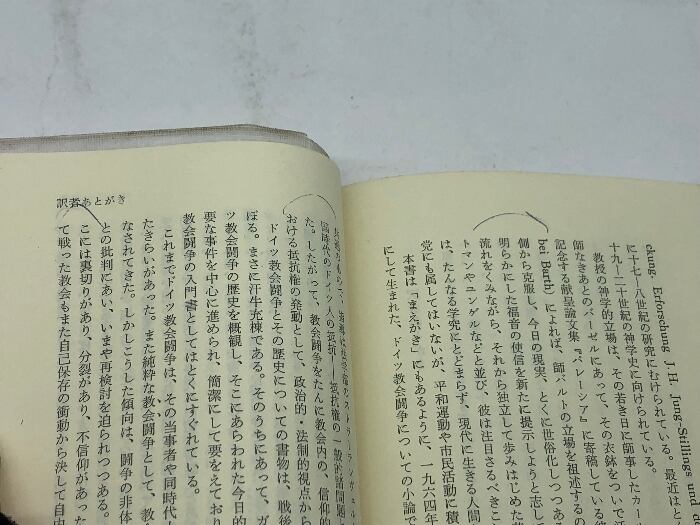 ckung, Erforschung J. H. Jung-Stillings und
に十七-八世紀の研究にむけられている。最近はと
十九-二十世紀の神学史に向けられている。
教授の神学的立場は、その若き日に師事したカール
師なきあとのバーゼルにあって、その衣鉢をついで
記念する献呈論文集『パレーシア』に寄稿している
bei Barth) によれば、師バルトの立場を祖述するの
側から克服し、今日の現実、とくに世俗化しつつある
明らかにした福音の使信を新たに提示しようと志し
流れをくみながら、それから独立して歩みはじめた
トマンやユンゲルなどと並び、彼は注目さるべきこ
は、たんなる学究にとどまらず、現代に生きる人間
党にも属してはいないが、平和運動や市民活動に積
本書は「まえがき」にもあるように、一九六四年
にして生まれた、ドイツ教会闘争についての小論で
訳者あとがき
国時代のドイツ人の抵抗―抵抗権の一般的諸問題
た。したがって、教会闘争をたんに教会内の、信仰的
おける抵抗権の発動として、政治的・法制的視点から
ドイツ教会闘争とその歴史についての書物は、戦後
ぼる。まさに汗牛充棟である。そのうちにあって、ガ
ツ教会闘争の歴史を概観し、そこにあらわれた今日的
要な事件を中心に進められ、簡潔にして要をえており
教会闘争の入門書としてはとくにすぐれている。
これまでドイツ教会闘争は、その当事者や同時代
たきらいがあった。また純粋な教会闘争として、教
なされてきた。しかしこうした傾向は、闘争の非体
との批判にあい、いまや再検討を迫られつつある。
こには裏切りがあり、分裂があり、不信仰があった
て戦った教会もまた自己保存の衝動から決して自由